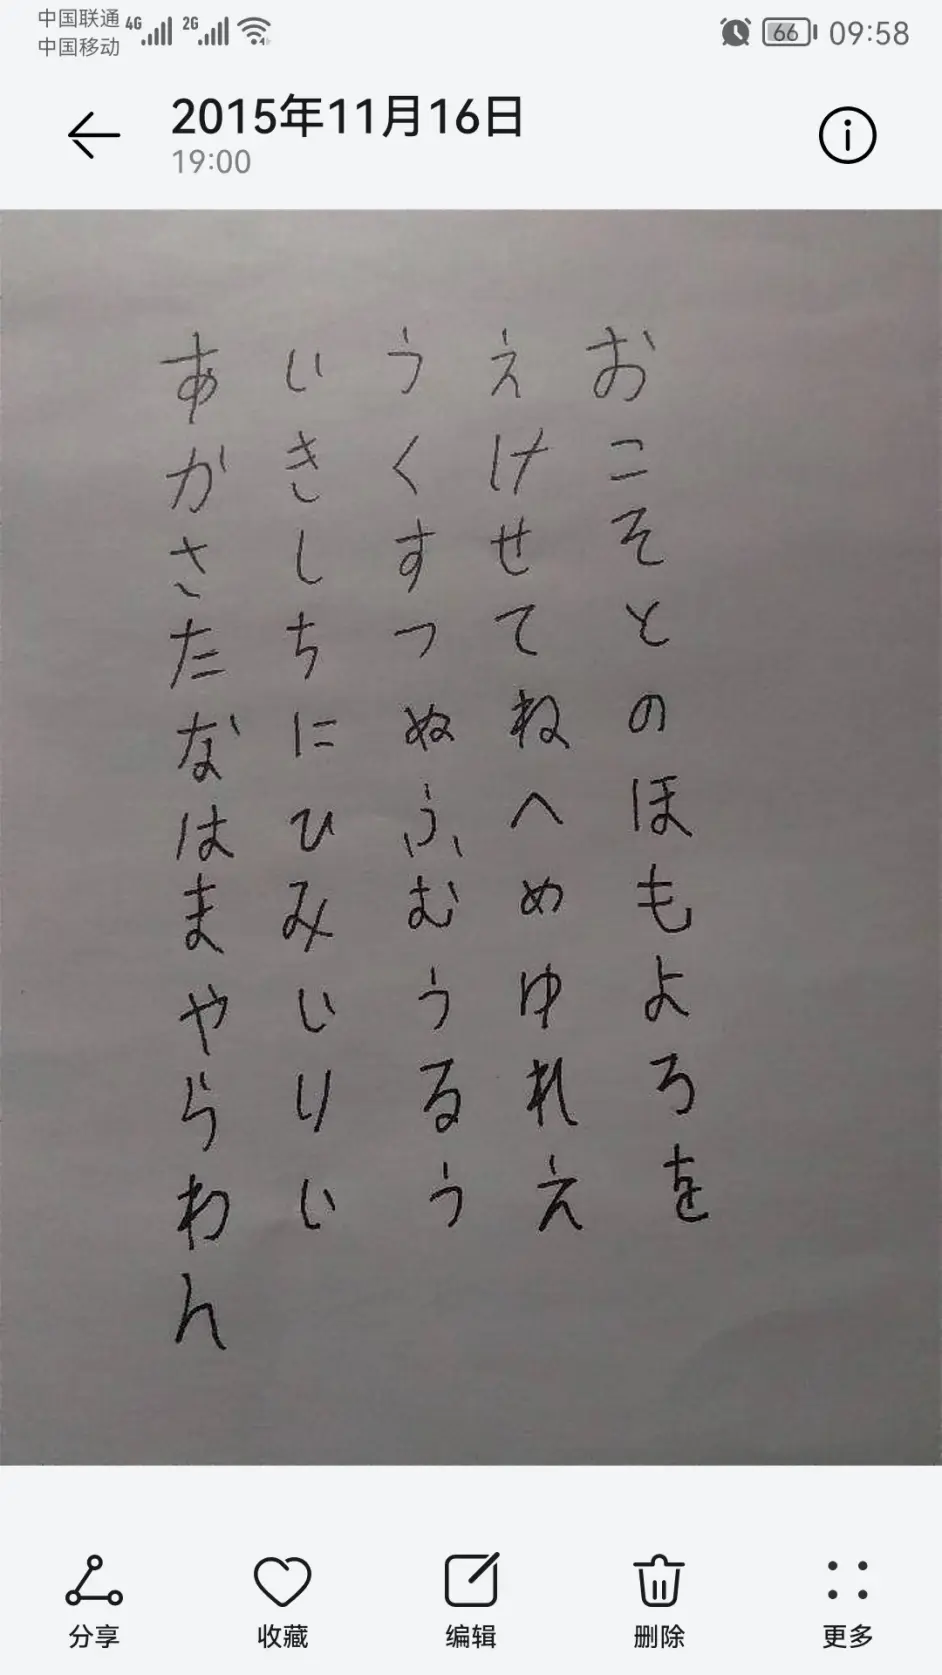 中国联通 4G 2G
中国移动
66 09:58
2015年11月16日
19:00
あ い う え お
か き く け こ
さ し す せ そ
た ち つ て と
な に ぬ ね の
は ひ ふ へ ほ
ま み む め も
や い う ゆ よ
ら り る れ ろ
わ い う え を
ん
分享 收藏 编辑 删除 更多